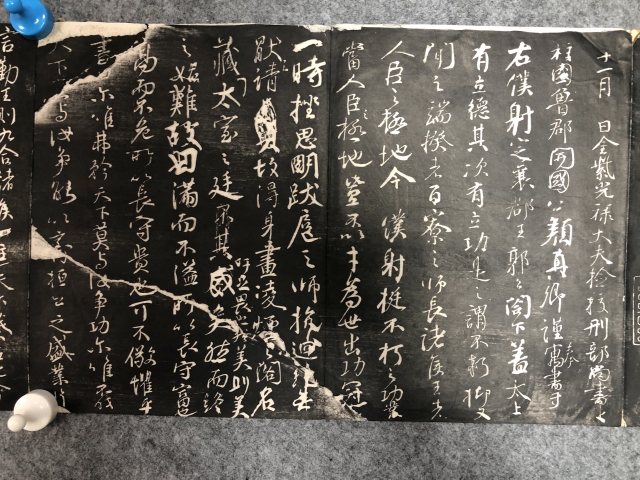 十一月 日金紫光祿大夫檢校刑部尚書上
柱國魯郡開國公顏真卿謹奉寓書于
右僕射定襄郡王郭公閤下蓋太上
有立德其次有立功是之謂不朽抑又
聞之端揆者百寮之師長諸侯王者
人臣之極地今僕射挺不朽之功業
當人臣之極地豈不以才為世出功冠
一時挫思明跋扈之師抗迴紇無
猒之請故得身畫凌煙之閣名
藏太室之廷吁足畏也然美則美矣而終
之始難故曰滿而不溢所以長守富也
高而不危所以長守貴也可不儆懼乎
書曰爾唯弗矜天下莫與汝爭功爾唯不伐
天下莫與汝爭能以齊桓公之盛業片
言勤王則九合諸侯一匡天下